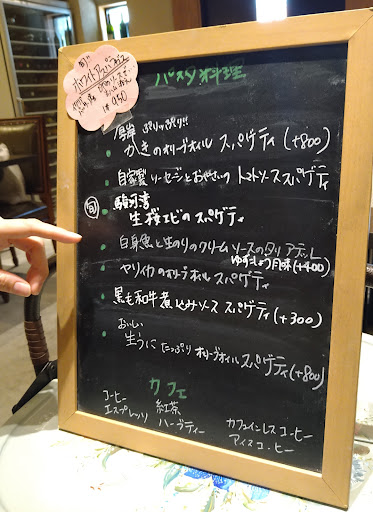 旬!!
ホワイトアスパラガス
¥950
パスタ料理
厚岸 ぷりっぷり!!
かきのオリーブオイル スパゲティ(+800)
自家製ソーセージとおやさいの トマトソーススパゲティ
旬 駿河湾
生桜エビのスパゲティ
白身魚と生のりのクリームソースのタリアテッレ
ゆずこしょう風味(+400)
ヤリイカのオリーブオイル スパゲティ
黒毛和牛煮込みソース スパゲティ(+300)
おいしい
生うに たっぷり オリーブオイル スパゲティ(+800)
カフェ
コーヒー 紅茶 カフェインレスコーヒー
エスプレッソ ハーブティー アイスコーヒー